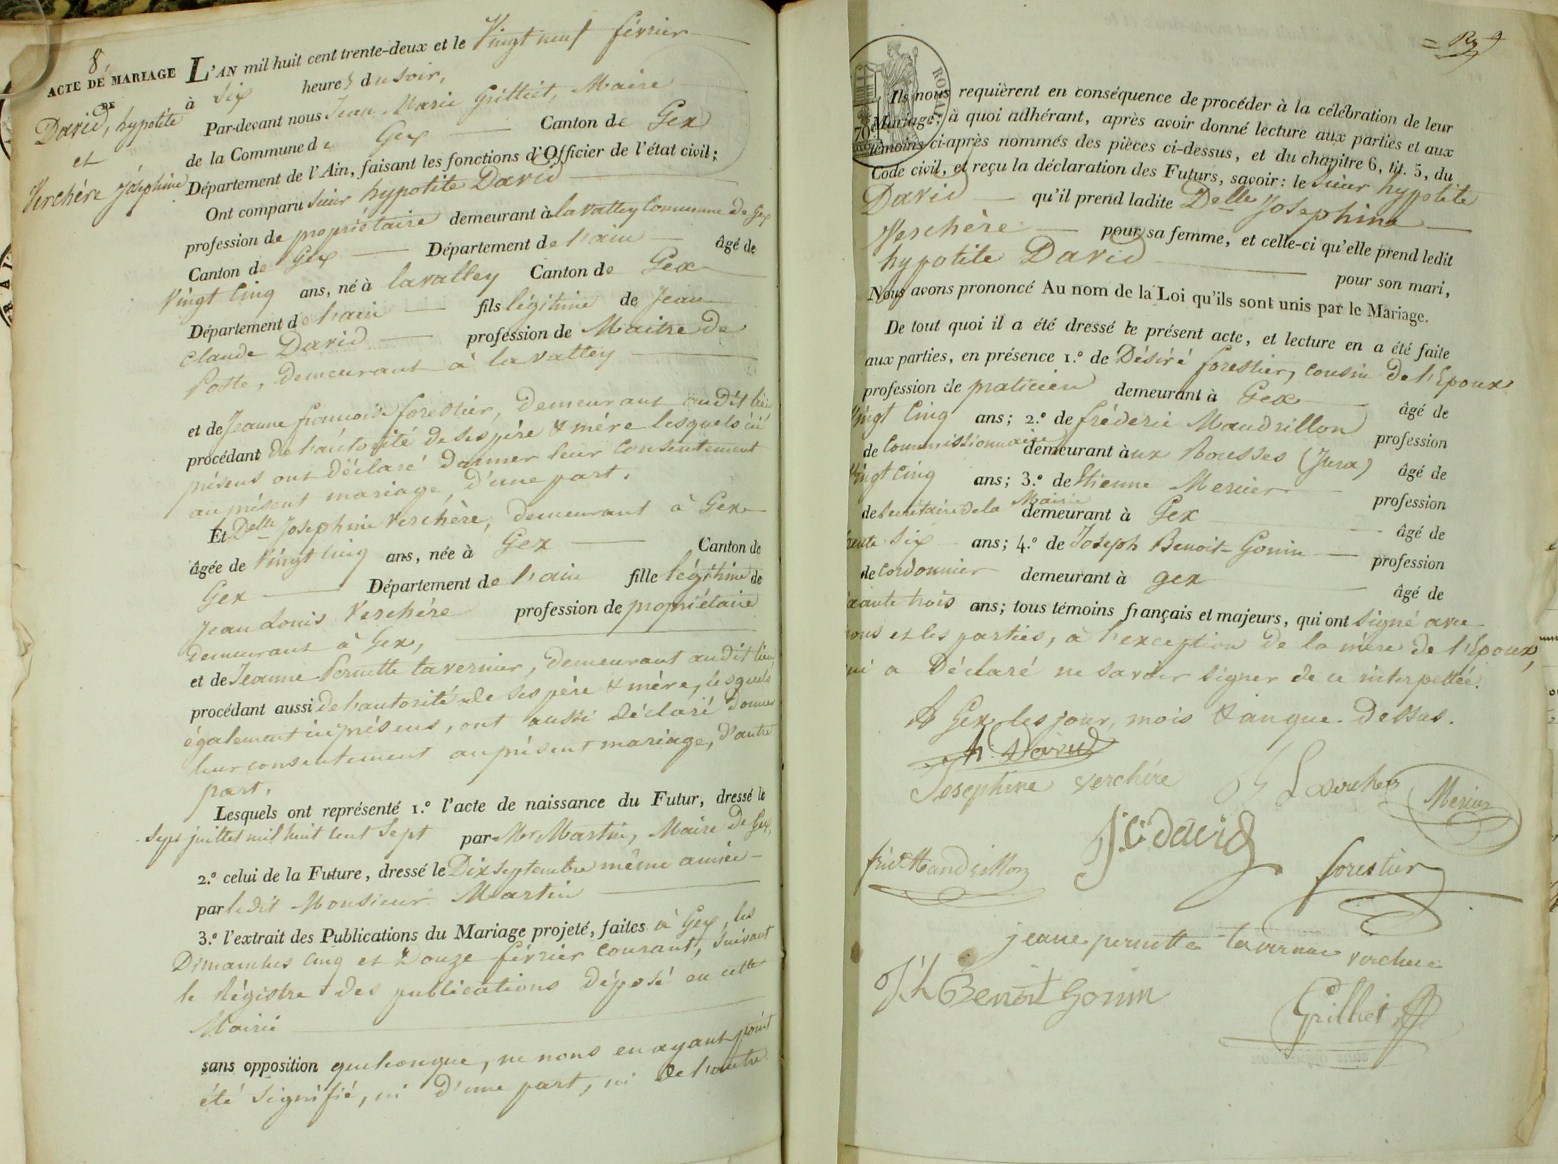 8
ACTE DE MARIAGE
DE
David, hypolite
et
Verchère Joséphine
L'AN mil huit cent trente-deux et le Vingt neuf février
à Six heures du soir,
Par-devant nous Jean Marie Grilliet, Maire
de la Commune de Gex Canton de Gex
Département de l'Ain, faisant les fonctions d'Officier de l'état civil;
Ont comparu Sieur hypolite David
profession de propriétaire demeurant à lavattey Commune de Gex
Canton de Gex Département de l'ain âgé de
Vingt Cinq ans, né à lavattey Canton de Gex
Département de l'ain fils légitime de Jean
Claude David profession de Maitre de
Poste, demeurant à lavattey
et de Jeanne françoise forestier, demeurant audit lieu
procédant de l'autorité de ses père & mère lesquels ici
présens ont déclaré donner leur Consentement
au présent mariage, d'une part.
Et Delle Josephine Verchère, demeurant à Gex
âgée de Vingt Cinq ans, née à Gex Canton de
Gex Département de l'ain fille légitime de
Jean Louis Verchère profession de propriétaire
demeurant à Gex,
et de Jeanne Pernette tavernier, demeurant audit lieu
procédant aussi de l'autorité de ses père & mère, lesquels
également ici présens, ont aussi déclaré donner
leur consentement au présent mariage, d'autre
part.
Lesquels ont représenté 1.º l'acte de naissance du Futur, dressé le
Sept juillet mil huit cent Sept par Mr Martin, Maire de Gex,
2.º celui de la Future, dressé le Dix Septembre même année
par ledit Monsieur Martin
3.º l'extrait des Publications du Mariage projeté, faites à Gex, les
Dimanches Cinq et Douze février Courant, Suivant
le Régistre des publications déposé en cette
Mairie
sans opposition quelconque, ne nous en ayant point
été Signifié, ni d'une part, ni de l'autre
ROYAL
Ils nous requièrent en conséquence de procéder à la célébration de leur
Mariage; à quoi adhérant, après avoir donné lecture aux parties et aux
témoins ci-après nommés des pièces ci-dessus, et du chapitre 6, tit. 5, du
Code civil, et reçu la déclaration des Futurs, savoir: le Sieur hypolite
David qu'il prend ladite Delle Josephine
Verchère pour sa femme, et celle-ci qu'elle prend ledit
hypolite David pour son mari,
Nous avons prononcé Au nom de la Loi qu'ils sont unis par le Mariage.
De tout quoi il a été dressé le présent acte, et lecture en a été faite
aux parties, en présence 1.º de Désiré forestier, cousin de l'Epoux
profession de praticien demeurant à Gex âgé de
Vingt Cinq ans; 2.º de fréderic Mandrillon profession
de Commissionnaire demeurant aux Rousses (Jura) âgé de
Vingt Cinq ans; 3.º de Etienne Mercier profession
de Secrétaire de la Mairie demeurant à Gex âgé de
trente Six ans; 4.º de Joseph Benoit-Gonin profession
de Cordonnier demeurant à gex âgé de
ixante trois ans; tous témoins français et majeurs, qui ont Signé avec
nous et les parties, à l'exception de la mère de l'Epoux,
qui a déclaré ne savoir Signer de ce interpellée.
A Gex, les jour, mois & an que dessus.
h. David
Josephine verchère
Mercier
J: C: david
fric Mandrillon
forestier
jeane pernette tavernier verchere
Jh Benoit Gonin
Grilliet